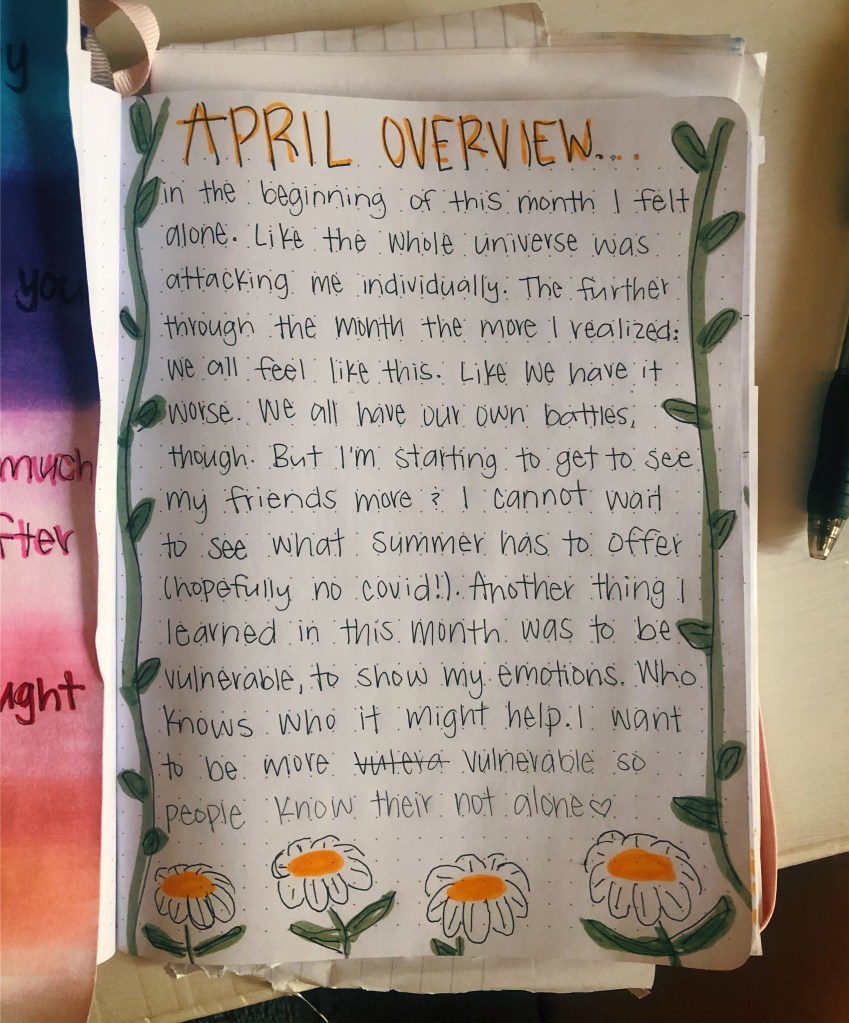 y
you
much
fter
ught
APRIL OVERVIEW...
in the beginning of this month I felt
alone. Like the whole universe was
attacking me individually. The further
through the month the more I realized:
we all feel like this. Like we have it
worse. We all have our own battles,
though. But I'm starting to get to see
my friends more & I cannot wait
to see what summer has to offer
(hopefully no covid!). Another thing I
learned in this month was to be
vulnerable, to show my emotions. Who
knows who it might help. I want
to be more vulera vulnerable so
people know their not alone♡